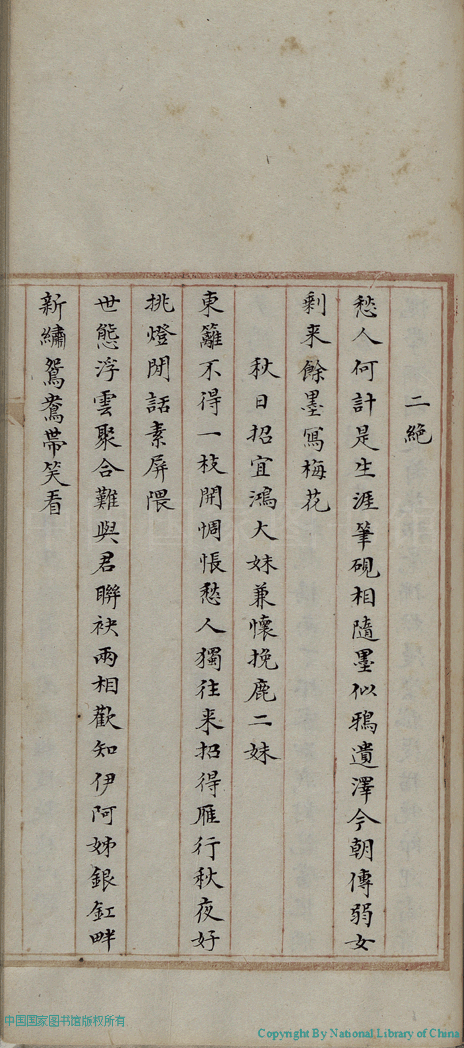 二絕
愁人何計是生涯筆硯相隨墨似鴉遺澤今朝傳弱女
剩来餘墨寫梅花
秋日招宜鴻大妹兼懷挽鹿二妹
東籬不得一枝開惆悵愁人獨往来招得雁行秋夜好
挑燈閒話素屏隈
世態浮雲聚合難與君聯袂兩相歡知伊阿姊銀釭畔
新繡鴛鴦帶笑看
中国国家图书馆版权所有
Copyright By National Library of China